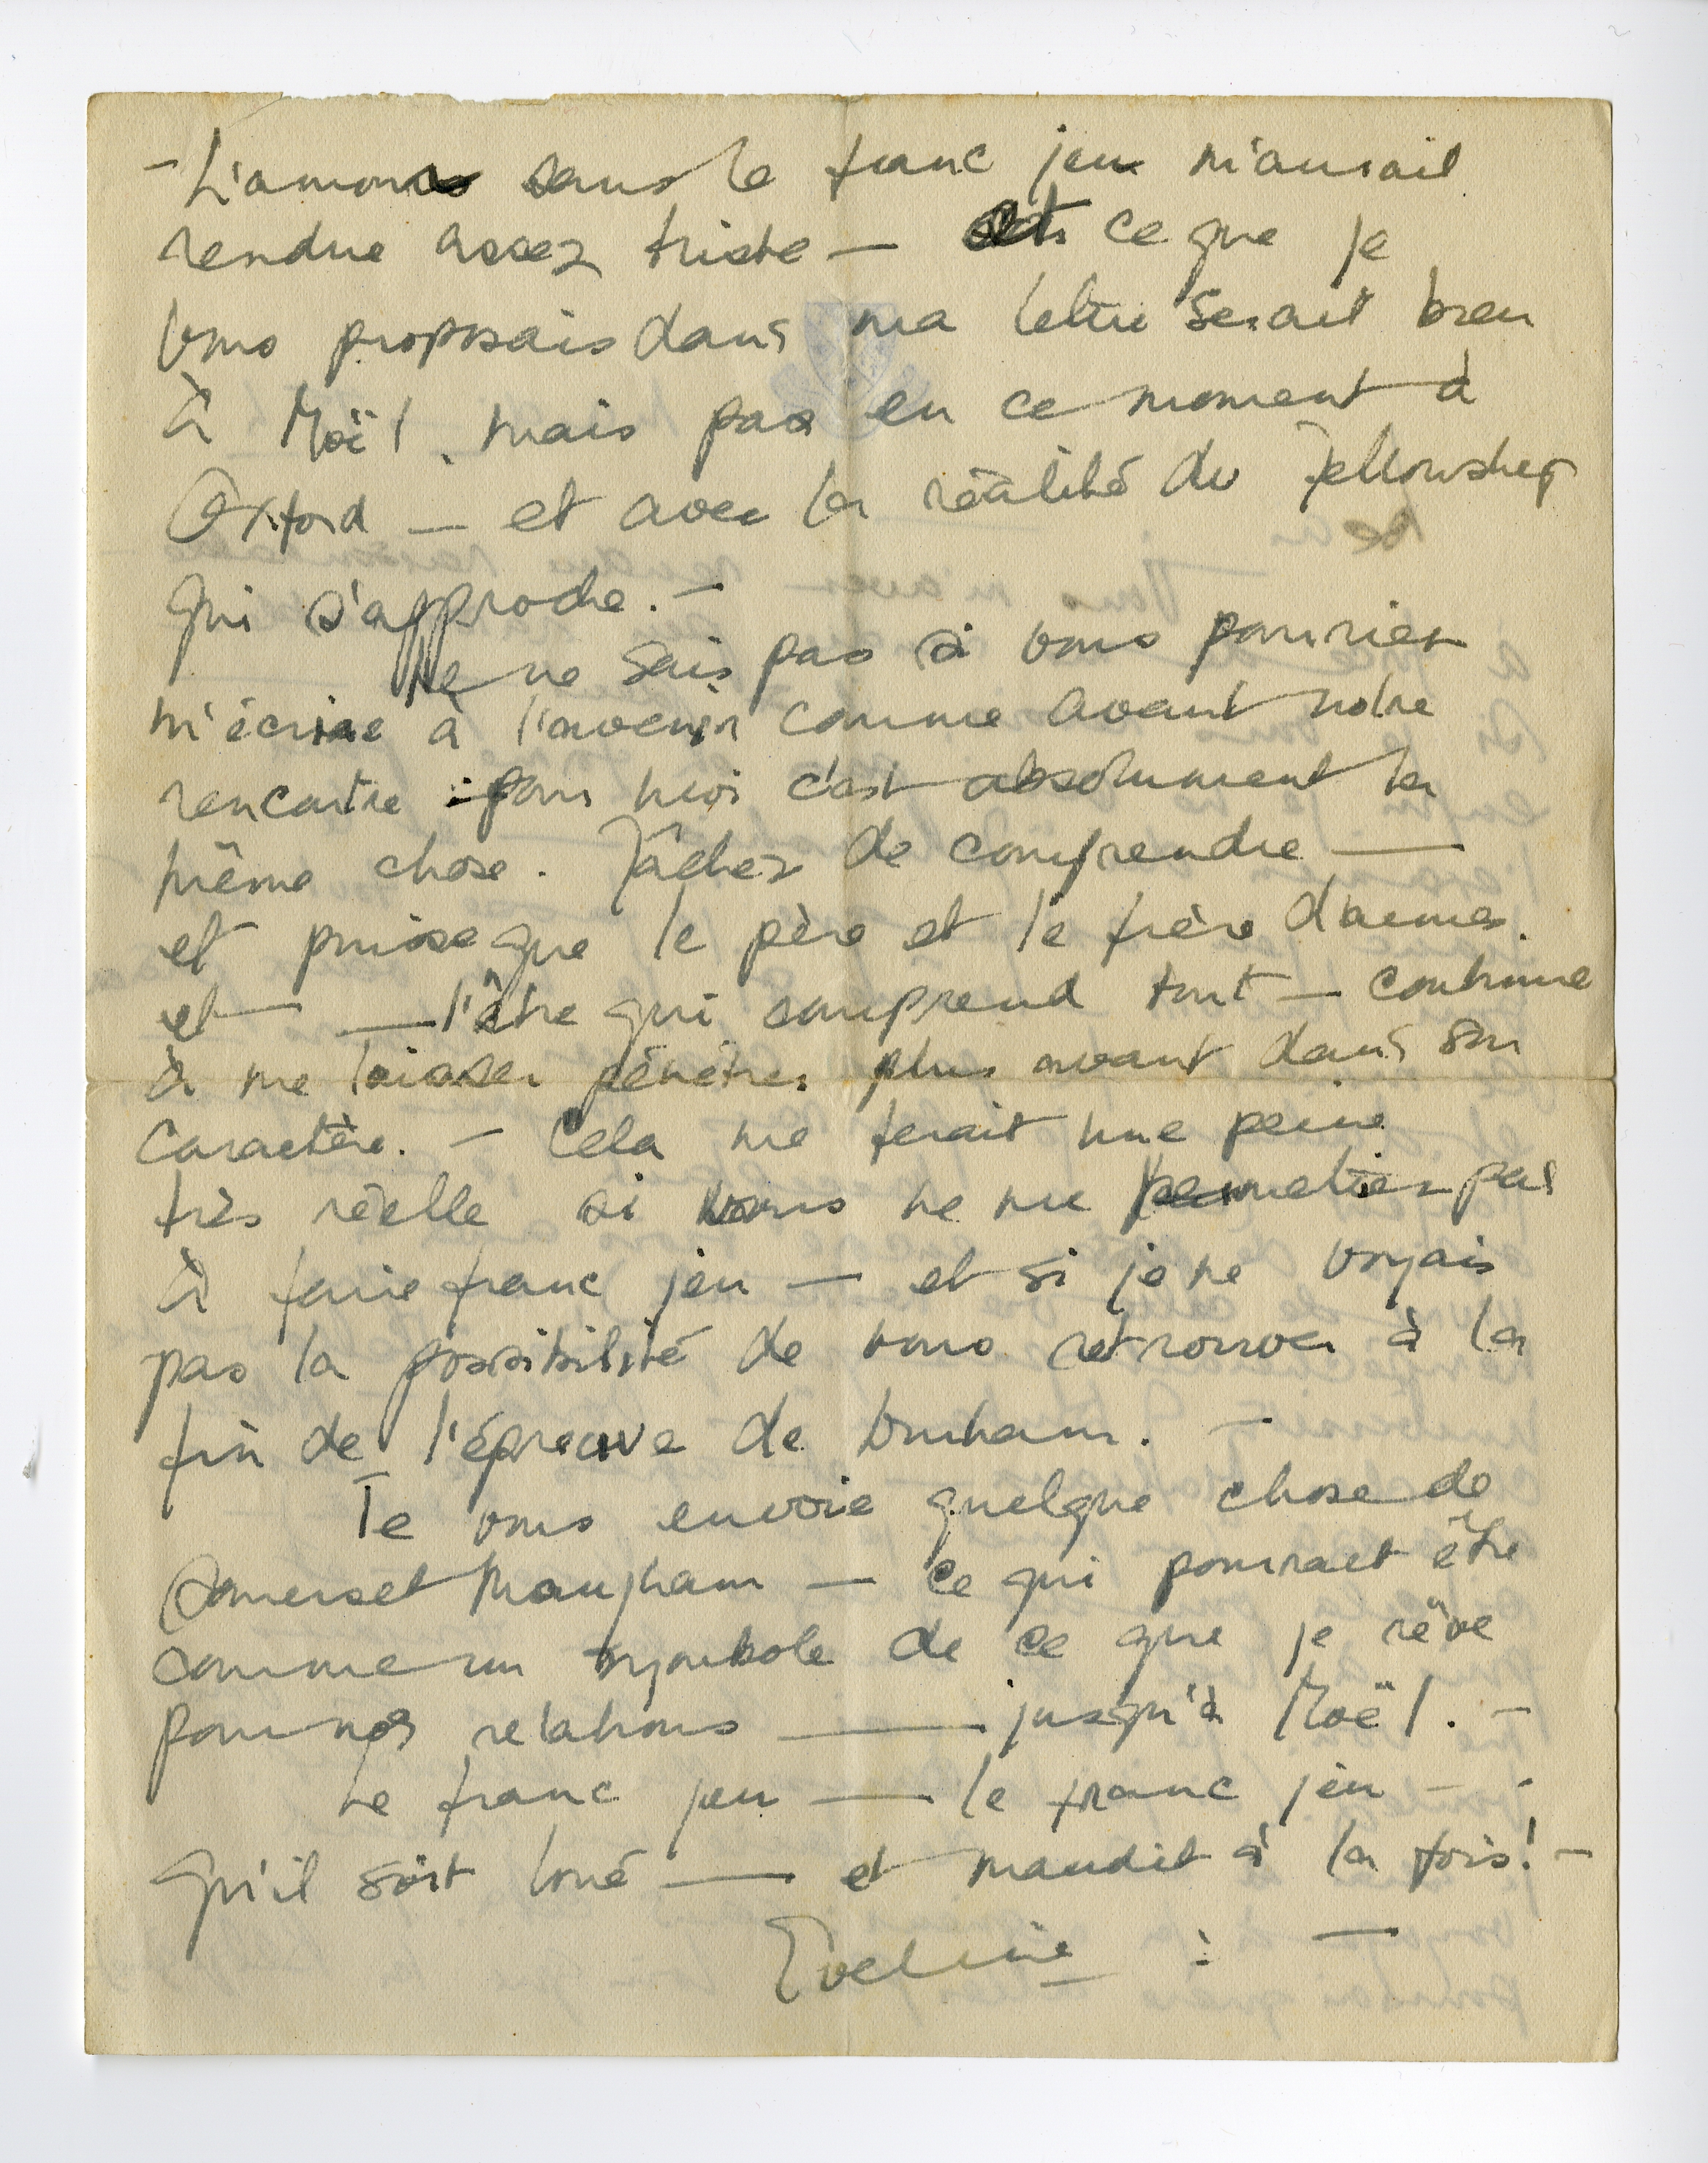 - L'amour sans le franc jeu m'aurait
rendue assez triste — et ce que je
vous proposais dans ma lettre serait bien
à Noël, mais pas en ce moment à
Oxford — et avec la réalité du Fellowship
qui s'approche. -
Je ne sais pas si vous pourriez
m'écrire à l'avenir comme avant notre
rencontre : pour moi c'est absolument la
même chose. Tâchez de comprendre —
et puisse que le père et le frère d'armes.
et — — l'être qui comprend tout — continue
à me laisser pénétrer plus avant dans son
caractère. - Cela me ferait une peine
très réelle si vous ne me permettiez pas
à faire franc jeu — et si je ne voyais
pas la possibilité de vous retrouver à la
fin de l'épreuve de
Je vous envoie quelque chose de
Somerset Maugham — ce qui pourrait être
comme un symbole de ce que je rêve
pour nos relations — jusqu'à Noël. -
Le franc jeu — le franc jeu - -
Qu'il soit loué — et maudit à la fois! -
Eveline : —